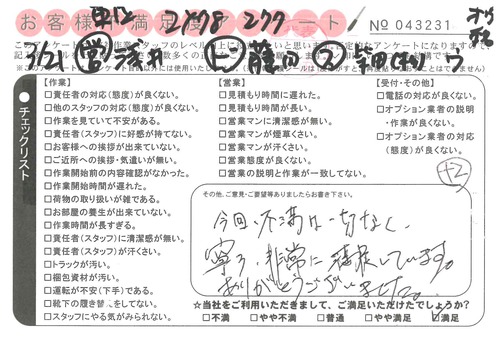 お客様満足度アンケート
No 043231
【作業】
□責任者の対応(態度)が良くない。
□他のスタッフの対応(態度)が良くない。
□作業を見ていて不安がある。
□責任者(スタッフ)に好感が持てない。
□お客様への挨拶が出来ていない。
□ご近所への挨拶・気遣いが無い。
□作業開始前の内容確認がなかった。
□作業開始時間が遅れた。
□荷物の取り扱いが雑である。
□お部屋の養生が出来ていない。
□作業時間が長すぎる。
□責任者(スタッフ)に清潔感が無い。
□責任者(スタッフ)が汗くさい。
□トラックが汚い。
□梱包資材が汚い。
□運転が不安(下手)である。
□靴下の履き替えをしてない。
□スタッフにやる気がみられない。
【営業】
□見積もり時間に遅れた。
□見積もり時間が長い。
□営業マンに清潔感が無い。
□営業マンが煙草くさい。
□営業マンが汗くさい。
□営業態度が良くない。
□営業の説明と作業が一致してない。
【受付・その他】
□電話の対応が良くない。
□オプション業者の説明
・作業が良くない。
□オプション業者の対応
(態度)が良くない。
●チェックリスト
その他、ご意見・ご要望等ありましたらお書き下さい。
今回、不満は一切なく、
寧ろ、非常に感謝しています。
ありがとうございました。
☆当社をご利用いただきまして、ご満足いただけたでしょうか?
□不満 □やや不満 □普通 □やや満足 ☑満足